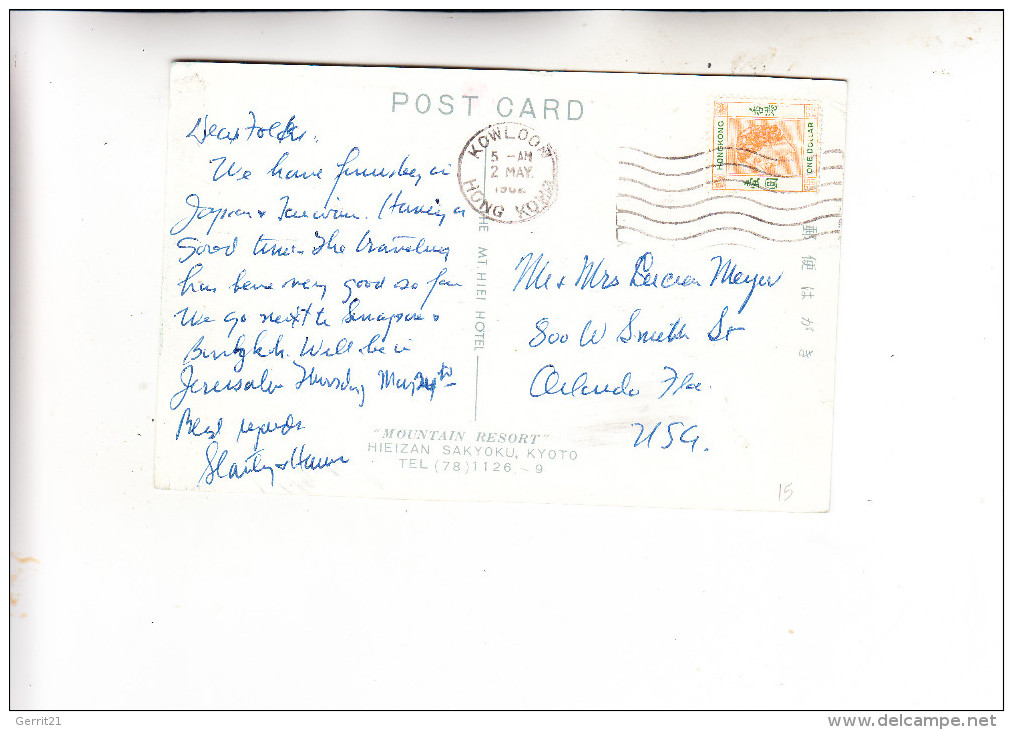 POST CARD
Dear Folks,
We have finished in
Japan & Taiwan. Having a
Good time. The traveling
has been very good so far
We go next to Singapore &
Bangkok. Will be in
Jerusalem Thursday May 24th
Best regards
KOWLOON
5 - AM
2 MAY.
HONG KONG
HONGKONG
ONE DOLLAR
THE MT. HIEI HOTEL
郵便はがき
Mr & Mrs Lucien Meyer
800 W Smith St
Orlando Fla.
USA.
"MOUNTAIN RESORT"
HIEIZAN SAKYOKU, KYOTO
TEL (78) 1126 - 9
15
Gerrit21
www.delcampe.net